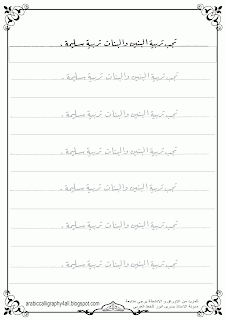 تجب تربية البنين والبنات تربية سليمة .
تجب تربية البنين والبنات تربية سليمة .
تجب تربية البنين والبنات تربية سليمة .
تجب تربية البنين والبنات تربية سليمة .
تجب تربية البنين والبنات تربية سليمة .
تجب تربية البنين والبنات تربية سليمة .
تجب تربية البنين والبنات تربية سليمة .
للمزيد من الأوراق و الأنشطة يرجى متابعة
مدونة الأستاذ يسري أنور للخط العربي
arabiccalligraphy4all.blogspot.com